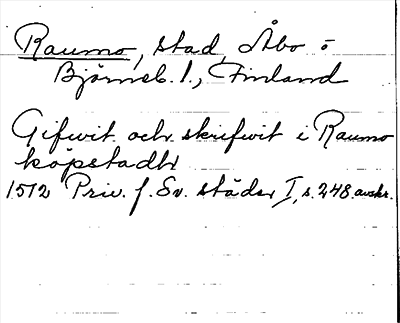 Raumo, stad, Åbo o
Björneb. l., Finland
Gifwit och skrifwit i Raumo
köpstadh
1512 Priv. f. Sv. städer I, s. 248. avskr.